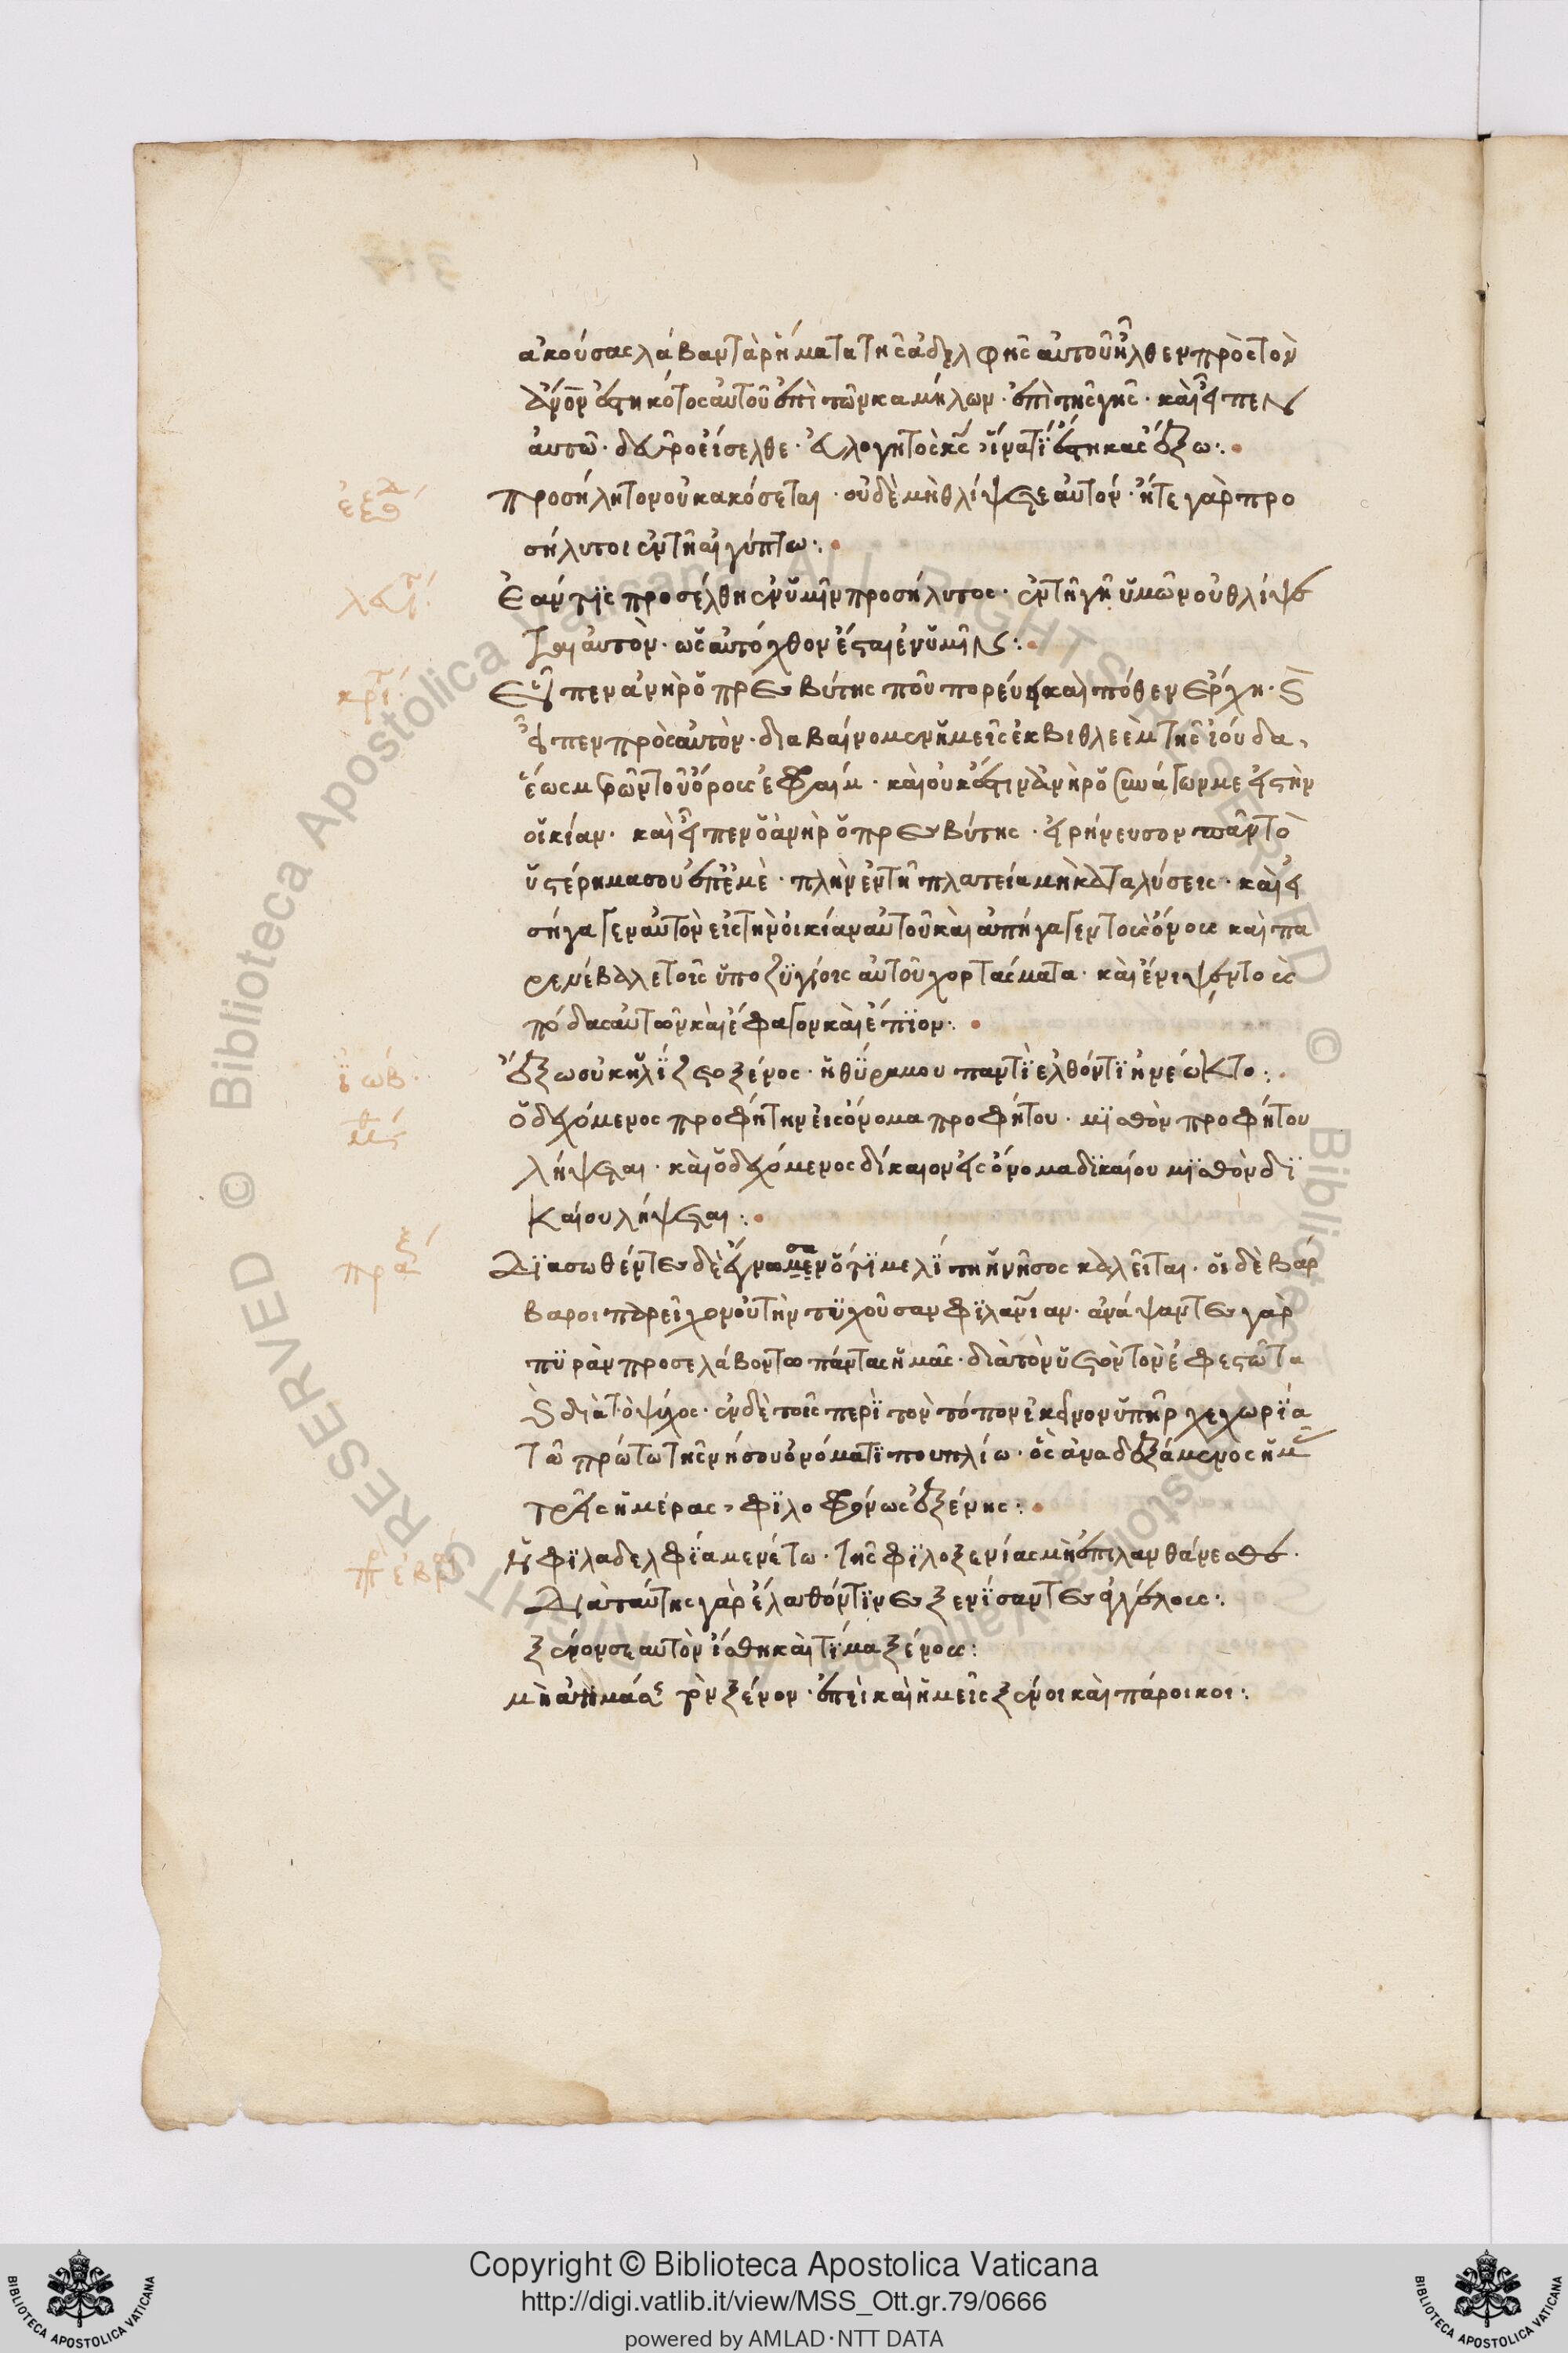 ἀκούσας λάβαν τὰ ῥήματα τῆς ἀδελφῆς αὐτοῦ ἦλθεν πρὸς τὸν
ἄνον ἑστηκότος αὐτοῦ ἐπὶ τῶν καμήλων · ἐπὶ τῆς γῆς · καὶ εἶπεν
αὐτῶ · δεῦρο εἴσελθε · εὐλογητὸς κς · ἵνα τΐ ἕστηκας ἔξω :
ἐξοδ
προσήλητον οὐ κακόσεται · οὐδὲ μὴ θλίψετε αὐτόν · ἦτε γὰρ προ
σήλυτοι ἐν τῆ αἰγύπτω :
λευϊ
Ἐάν τϊς προσέλθη ἐν ὑμῖν προσήλυτος · ἐν τῆ γῆ ὑμῶν οὐ θλίψε
ται αὐτὸν · ὡς αὐτόχθον ἔσται ἐν ὑμῖν :
κριτ
Εἶπεν ἀνὴρ ὁ πρεσβύτης ποῦ πορεύη καὶ πόθεν ἔρχη · καὶ
εἶπεν πρὸς αὐτὸν · διαβαίνομεν ἡμεῖς ἐκ βιθλεὲμ τῆς ἰούδα,
ἕως μηρῶν τοῦ ὄρους ἐφραίμ · καὶ οὐκ ἔστιν ἀνὴρ ὁ συνάγων με εἰς τὴν
οἰκίαν · καὶ εἶπεν ὁ ἀνὴρ ὁ πρεσβύτης · εἰρήνευσον πᾶν τὸ
ὑστέρημα σου ἐπ' ἐμὲ · πλὴν ἐν τῆ πλατεία μὴ καταλύσεις · καὶ εἰ
σήγαγεν αὐτὸν εἰς τὴν οἰκίαν αὐτοῦ καὶ ἀπήγαγεν τοὺς ὄνους καὶ πα
ρενέβαλε τοῖς ὑποζϋγίοις αὐτοῦ χορτάσματα · καὶ ἐνιψέντο τοὺς
πόδας αὐτῶν καὶ ἔφαγον καὶ ἔπϊον :
ϊωβ
Ἔξω οὐκ ηὐλΐζετο ξένος · ἡ θϋρα μου παντΐ ἐλθόντϊ ἠνέωκτο :
Ὁ δεχόμενος προφήτην εἰς ὄνομα προφήτου · μϊσθὸν προφήτου
λήψεται · καὶ ὁ δεχόμενος δίκαιον εἰς ὄνομα δϊκαίου μϊσθὸν δϊ
καίου λήψεται :
πραξ
Διασωθέντες δὲ ἔγνωμεν σα ὅτϊ μελΐτη ἡ νῆσος καλεῖται · οἱ δὲ βάρ
βαροι παρεῖχον οὐ τὴν τϋχοῦσαν φϊλανίαν · ἀνάψαντες γὰρ
πϋρὰν προσελάβοντο πάντας ἡμᾶς · διὰ τὸν ὑετὸν τὸν ἐφεστῶτα
καὶ διὰ τὸ ψύχος · ἐν δὲ τοῖς περὶ τὸν τόπον ἐκεῖνον ὑπῆρχε χωρΐα
τῶ πρώτω τῆς νήσου ὀνόματϊ πουπλίω · ὃς ἀναδεξάμενος ἡμᾶς
τρεῖς ἡμέρας, φϊλοφρόνως ἐξένης :
πρ ἑβρ
Ἡ φϊλαδελφΐα μενέτω · τῆς φϊλοξενίας μὴ ἐπιλανθάνεσθε ·
Διὰ ταύτης γὰρ ἔλαθόν τϊνες ξενΐσαντες ἀγγέλους :
ξένον σεαυτὸν ἴσθη καὶ τΐμα ξένους :
μὴ ἀτιμάσης τὸν ξένον · ἐπεὶ καὶ ἡμεῖς ξένοι καὶ πάροικοι :
Copyright © Biblioteca Apostolica Vaticana
http://digi.vatlib.it/view/MSS_Ott.gr.79/0666
powered by AMLAD·NTT DATA